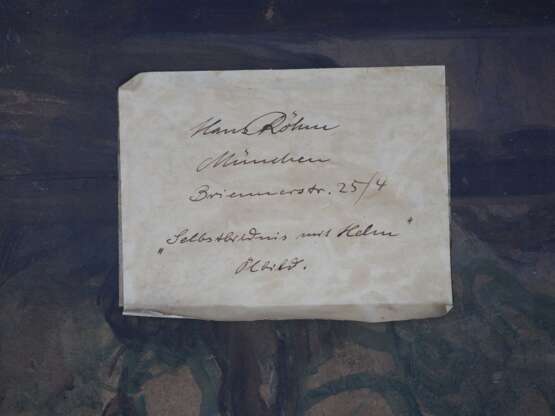 Hans Röhm
München
Briennerstr. 25/4
„Selbstbildnis mit Helm"
Ölbild.